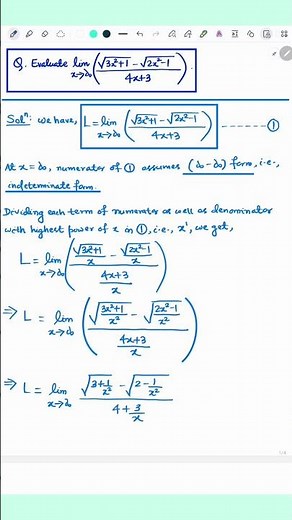 Q. Evaluate lim x→∞ ( (√(3x²+1) − √(2x²−1)) / (4x+3) ).
Solⁿ: we have, L = lim x→∞ ( (√(3x²+1) − √(2x²−1)) / (4x+3) ) -------- ①
At x=∞, numerator of ① assumes (∞-∞) form, i.e.,
indeterminate form.
Dividing each term of numerator as well as denominator
with highest power of x in ①, i.e., x¹, we get,
L = lim x→∞ ( (√(3x²+1)/x − √(2x²−1)/x) / ((4x+3)/x) )
⇒ L = lim x→∞ ( (√((3x²+1)/x²) − √((2x²−1)/x²)) / ((4x+3)/x) )
⇒ L = lim x→∞ (√(3+1/x²) − √(2−1/x²)) / (4+3/x)